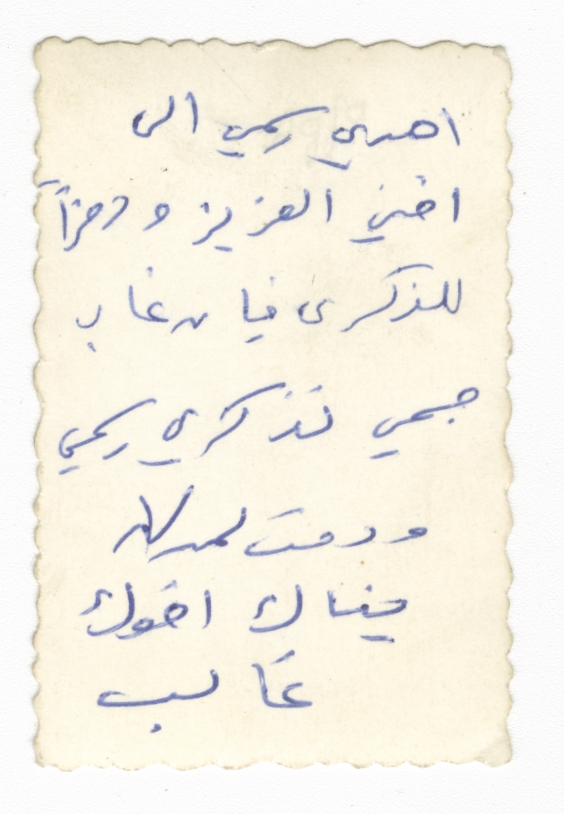 اهدي رسمي الى
اخي العزيز ورمزاً
للذكرى فان غاب
جسمي تذكري رسمي
ودمت لمن لا
ينساك اخوك
غالب